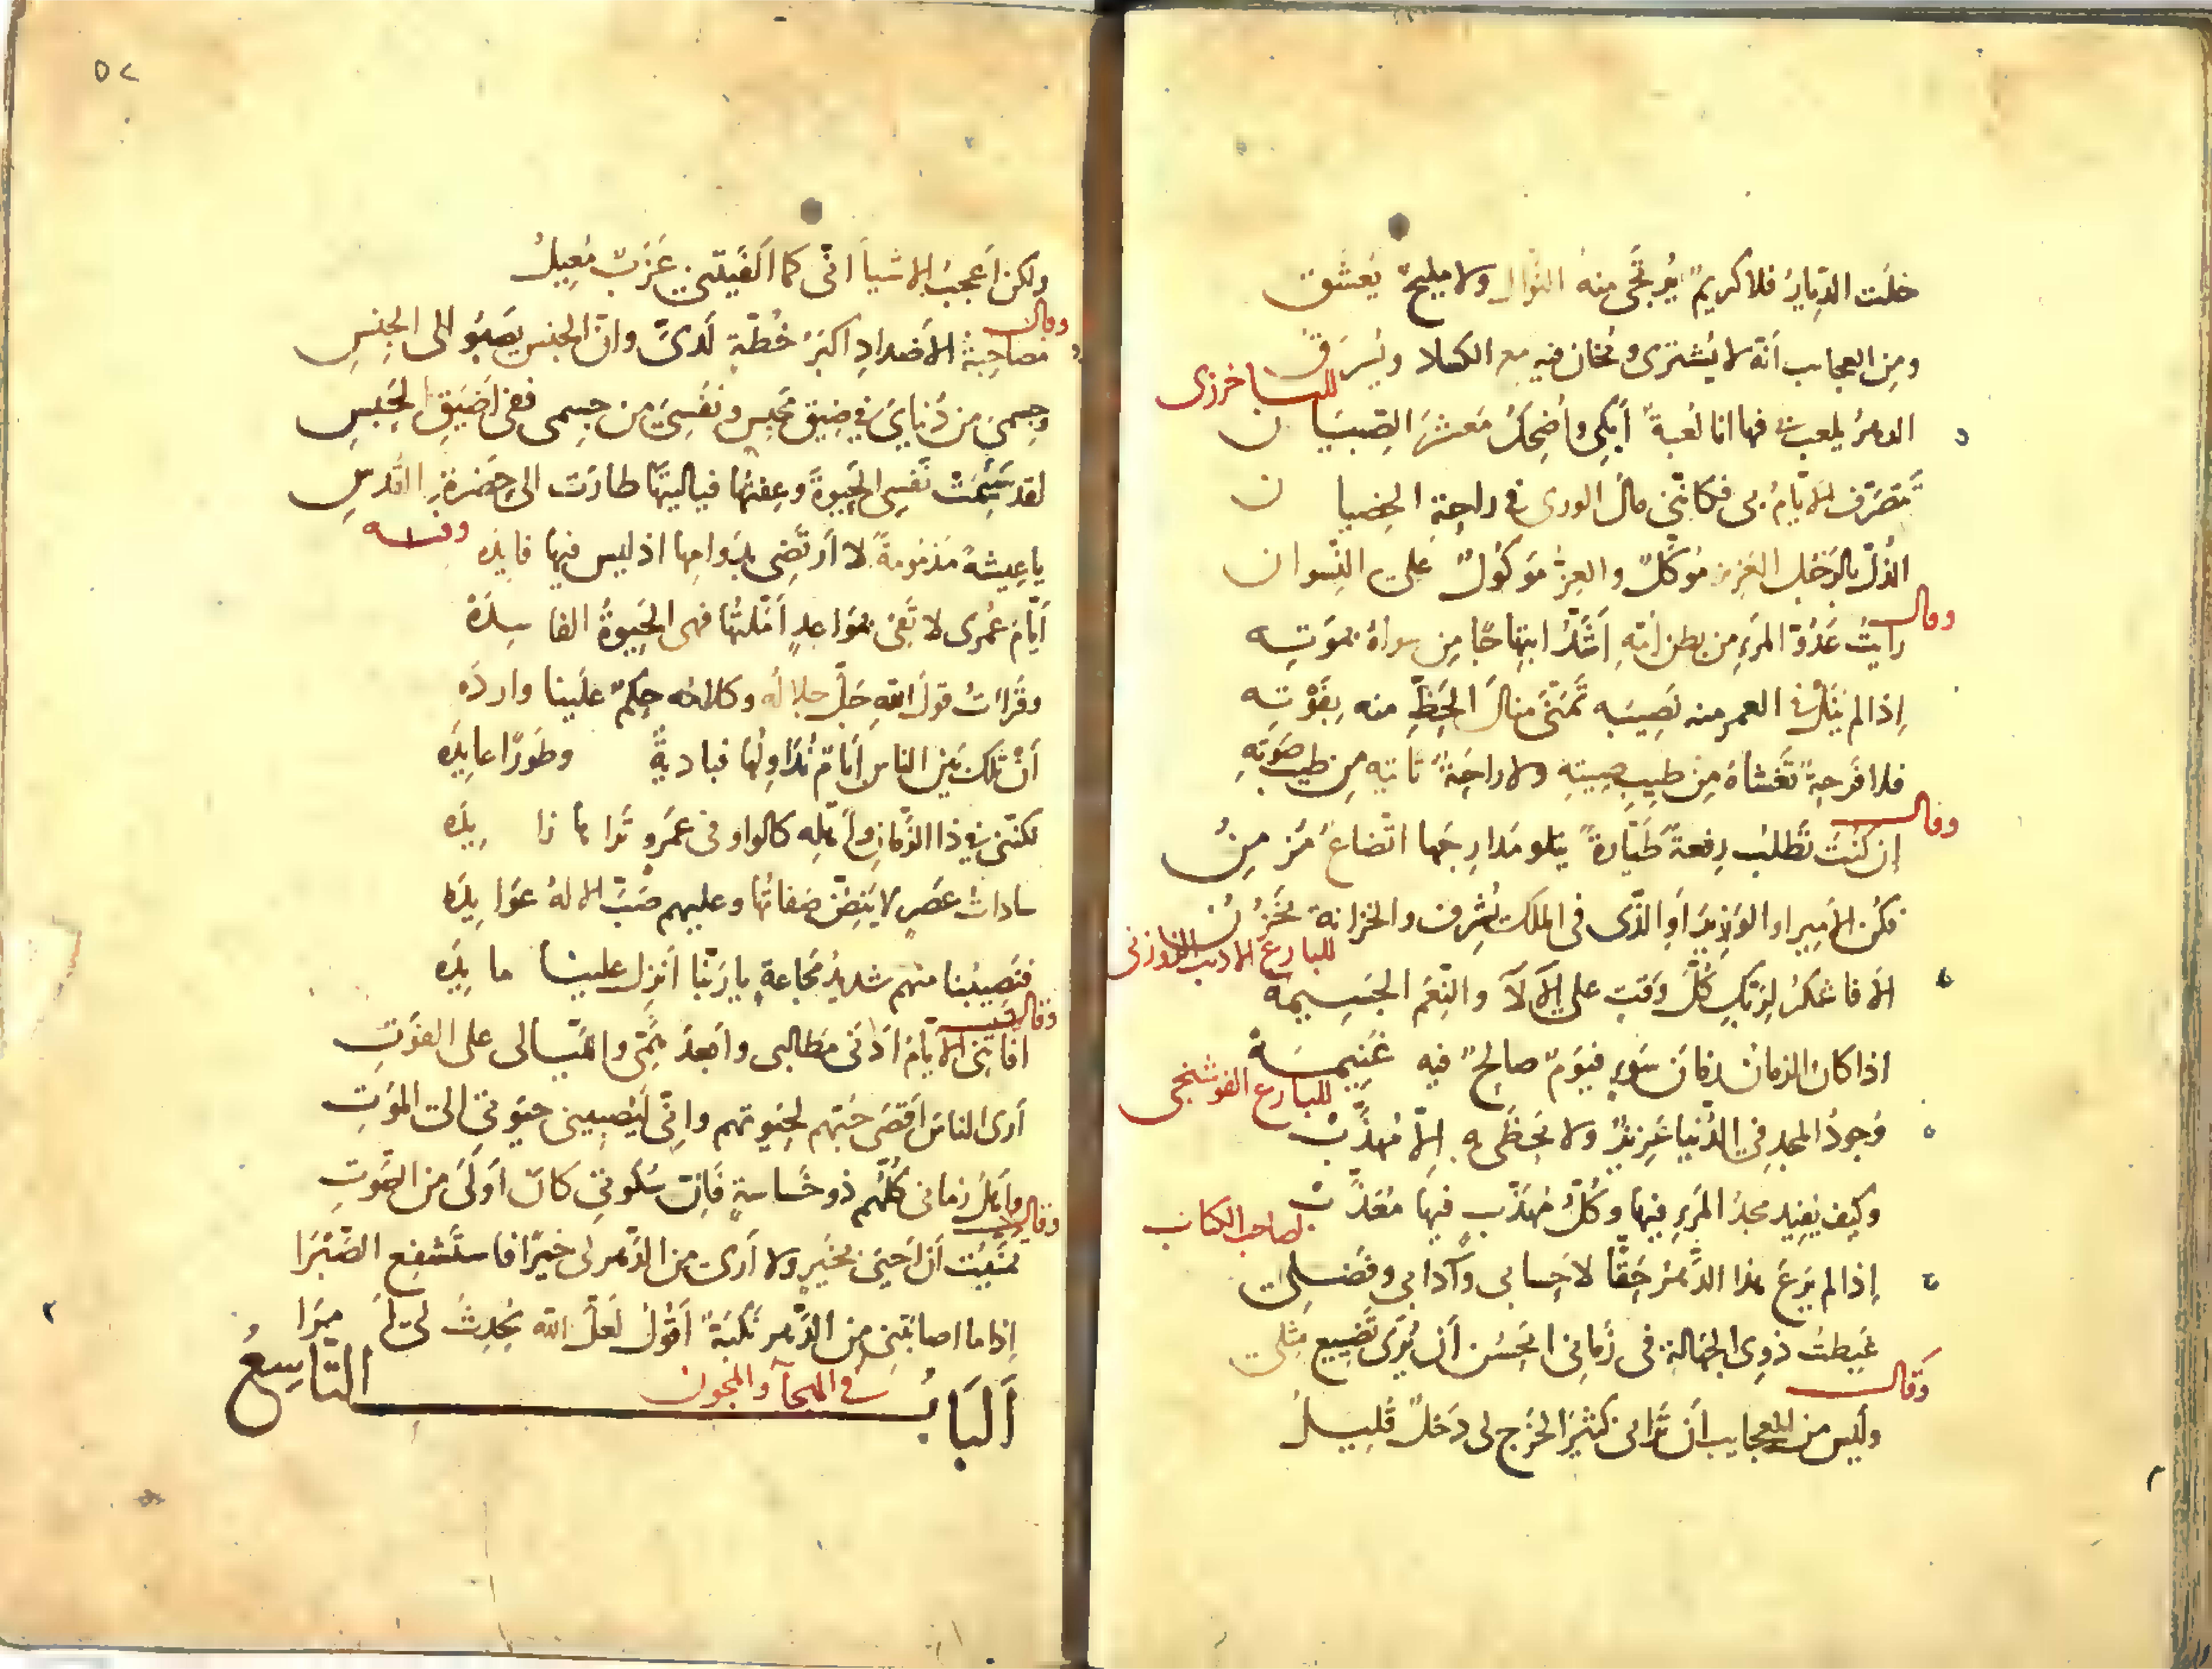 خلَت الدّيارُ فلا كريمٌ يُرتَجى منه النّوالُ ولا مليحٌ يُعشَق
ومِن العجايب أنّه لا يُشترى ويُخان فيه مع الكساد ويُسرَق
للباخرزى
الدهرُ يلعب بى فها انا لُعبةٌ أبكى وأُضحِكُ مَعشَرَ الصِّبيَان
تتصرّف الأيّامُ بى فكانّنى مالُ الورى فى راحة الخصيان
الذُلّ بالرّجُل العَزيز مُوكَّلٌ والعِزُّ مَوكُولٌ على النّسوان
وقال
رايتُ عَدُوّ المرَءِ من بطن أمّهِ اَشَدُّ ابتِهاجًا مِن سواهُ بموَتِه
اِذا لم يَنَل فى العمر منه نَصِيبَه تَمَنّى منالَ الحَظِّ منه بِفَوْتِه
فلا فَرحةٌ تَغشاهُ مِن طيبِ صِيتِهِ ولا راحَةٌ تاتيه مِن طيب صَوتهِ
وقال
اِن كنتَ تَطلبُ رِفعةً طَيّارةً يتلو مَدارِجَها اتّضاعٌ مُزمِنُ
فكُن الأميرَ او الوَزيرَ اَوِ الذّى فى الملك يُشرِف والخزانة يَخزُنُ
للبارع الاديب الزوزنى
اَلا فاشكُر لِرَبّك كُلَّ وَقتٍ على الآلآ والنِّعَم الجَسِيمه
اذا كان الزمانُ زمانَ سَوءٍ فيَومٌ صالحٌ فيه غَنِيمَهْ
للبارع الفوشنجى
وُجودُ المجدِ فى الدُّنيا عَزيزٌ ولا يَحظَى به اِلاّ مُهذَّبْ
وكيف يُفيد مجدُ المَرءِ فيها وكُلُّ مُهذَّبٍ فيها مُعَذَّبْ
لصاحب الكتاب
اِذا لم يَرعَ هذا الدَّهرُ حَقًّا لاَحسابى وآدابى وفَضلى
غَبِطتُ ذوِى الجَهالة فى زَمانى ايَحسُن اَن يُرَى تَضييع مِثلى
وقال
ولَيس من العجايب اَن تَرانى كثيرَ الخَرج لى دَخلٌ قَليلُ
٥٢
ولكن اَعجبُ الاشيآ انّى كما اَلفَيتَنى عَزَبٌ مُعِيلُ
وقال
مصاحبةُ الأضدادِ اكبَرُ خُطّةٍ لَدىَّ وانّ الجنس يَصبُو الى الجِنسِ
وجِسمىَ من دُنياىَ فى ضيق مَحبِسٍ ونفسِىَ من جِسمى ففى اَضيَقِ الحَبسِ
لقد سَئِمَتْ نَفسى الحَيوةَ وعِفتُها فياليتَها طارَت الى حَضرةِ القُدسِ
وله
يا عِيشةً مَذمُومةً لا اَرتَضِى بدَوامِها اذ ليس فيها فايِده
أيّامُ عُمرى لا تَفى بمَواعدٍ اَمّلتُها فهى الحَيوةُ الفاسِدَهْ
وقَراتُ قولَ اللهِ جَلّ جلالُه وكلامُه حِكَمٌ علَينا وارِدَه
اَنْ تِلك بَين الناس اَيّامٌ تُداوِلُها فبادِيةً وطَورًا عايِدَه
لكنّنى فى ذا الزَّمانِ واَهلِه كالواو فى عَمرٍو تَراها زايِدَه
ساداتُ عَصرٍ لا يَبِضّ صَفاتُها وعليهم صَبَّ الالهُ عَوايِدَه
فنَصِيبُنا منهم شديدُ مَجاعةٍ يا رَبَّنا اَنزِل علينا مايِدَه
وقال
افاتَتنِىَ الأيّامُ اَدنَى مَطالبى واَصعدُ هِمّتى والَهّبالى على الفَوتِ
أرى الناسَ اَقصَى حُبّهم لحَيوتهم وانّى لَيُصبينى حَيوتى الى المَوتِ
واَهلُ زمانى كُلُّهم ذو خَساسةٍ فاِنّ سُكُوتى كان اَولَى من الصَّوتِ
وقال
تمنَّيتُ اَن اَحيَى بخَيرٍ ولا اَرى من الدَّهر لى خيرًا فاستَشفِع الصَّبْرَا
اِذا ما اصابَتنِى مِن الدَّهر نَكبَةٌ اَقُولُ لَعَلّ الله يُحدِثُ لى اَمرَا
اَلبَابُ التَّاسِعُ
فى الهجآ والمجون